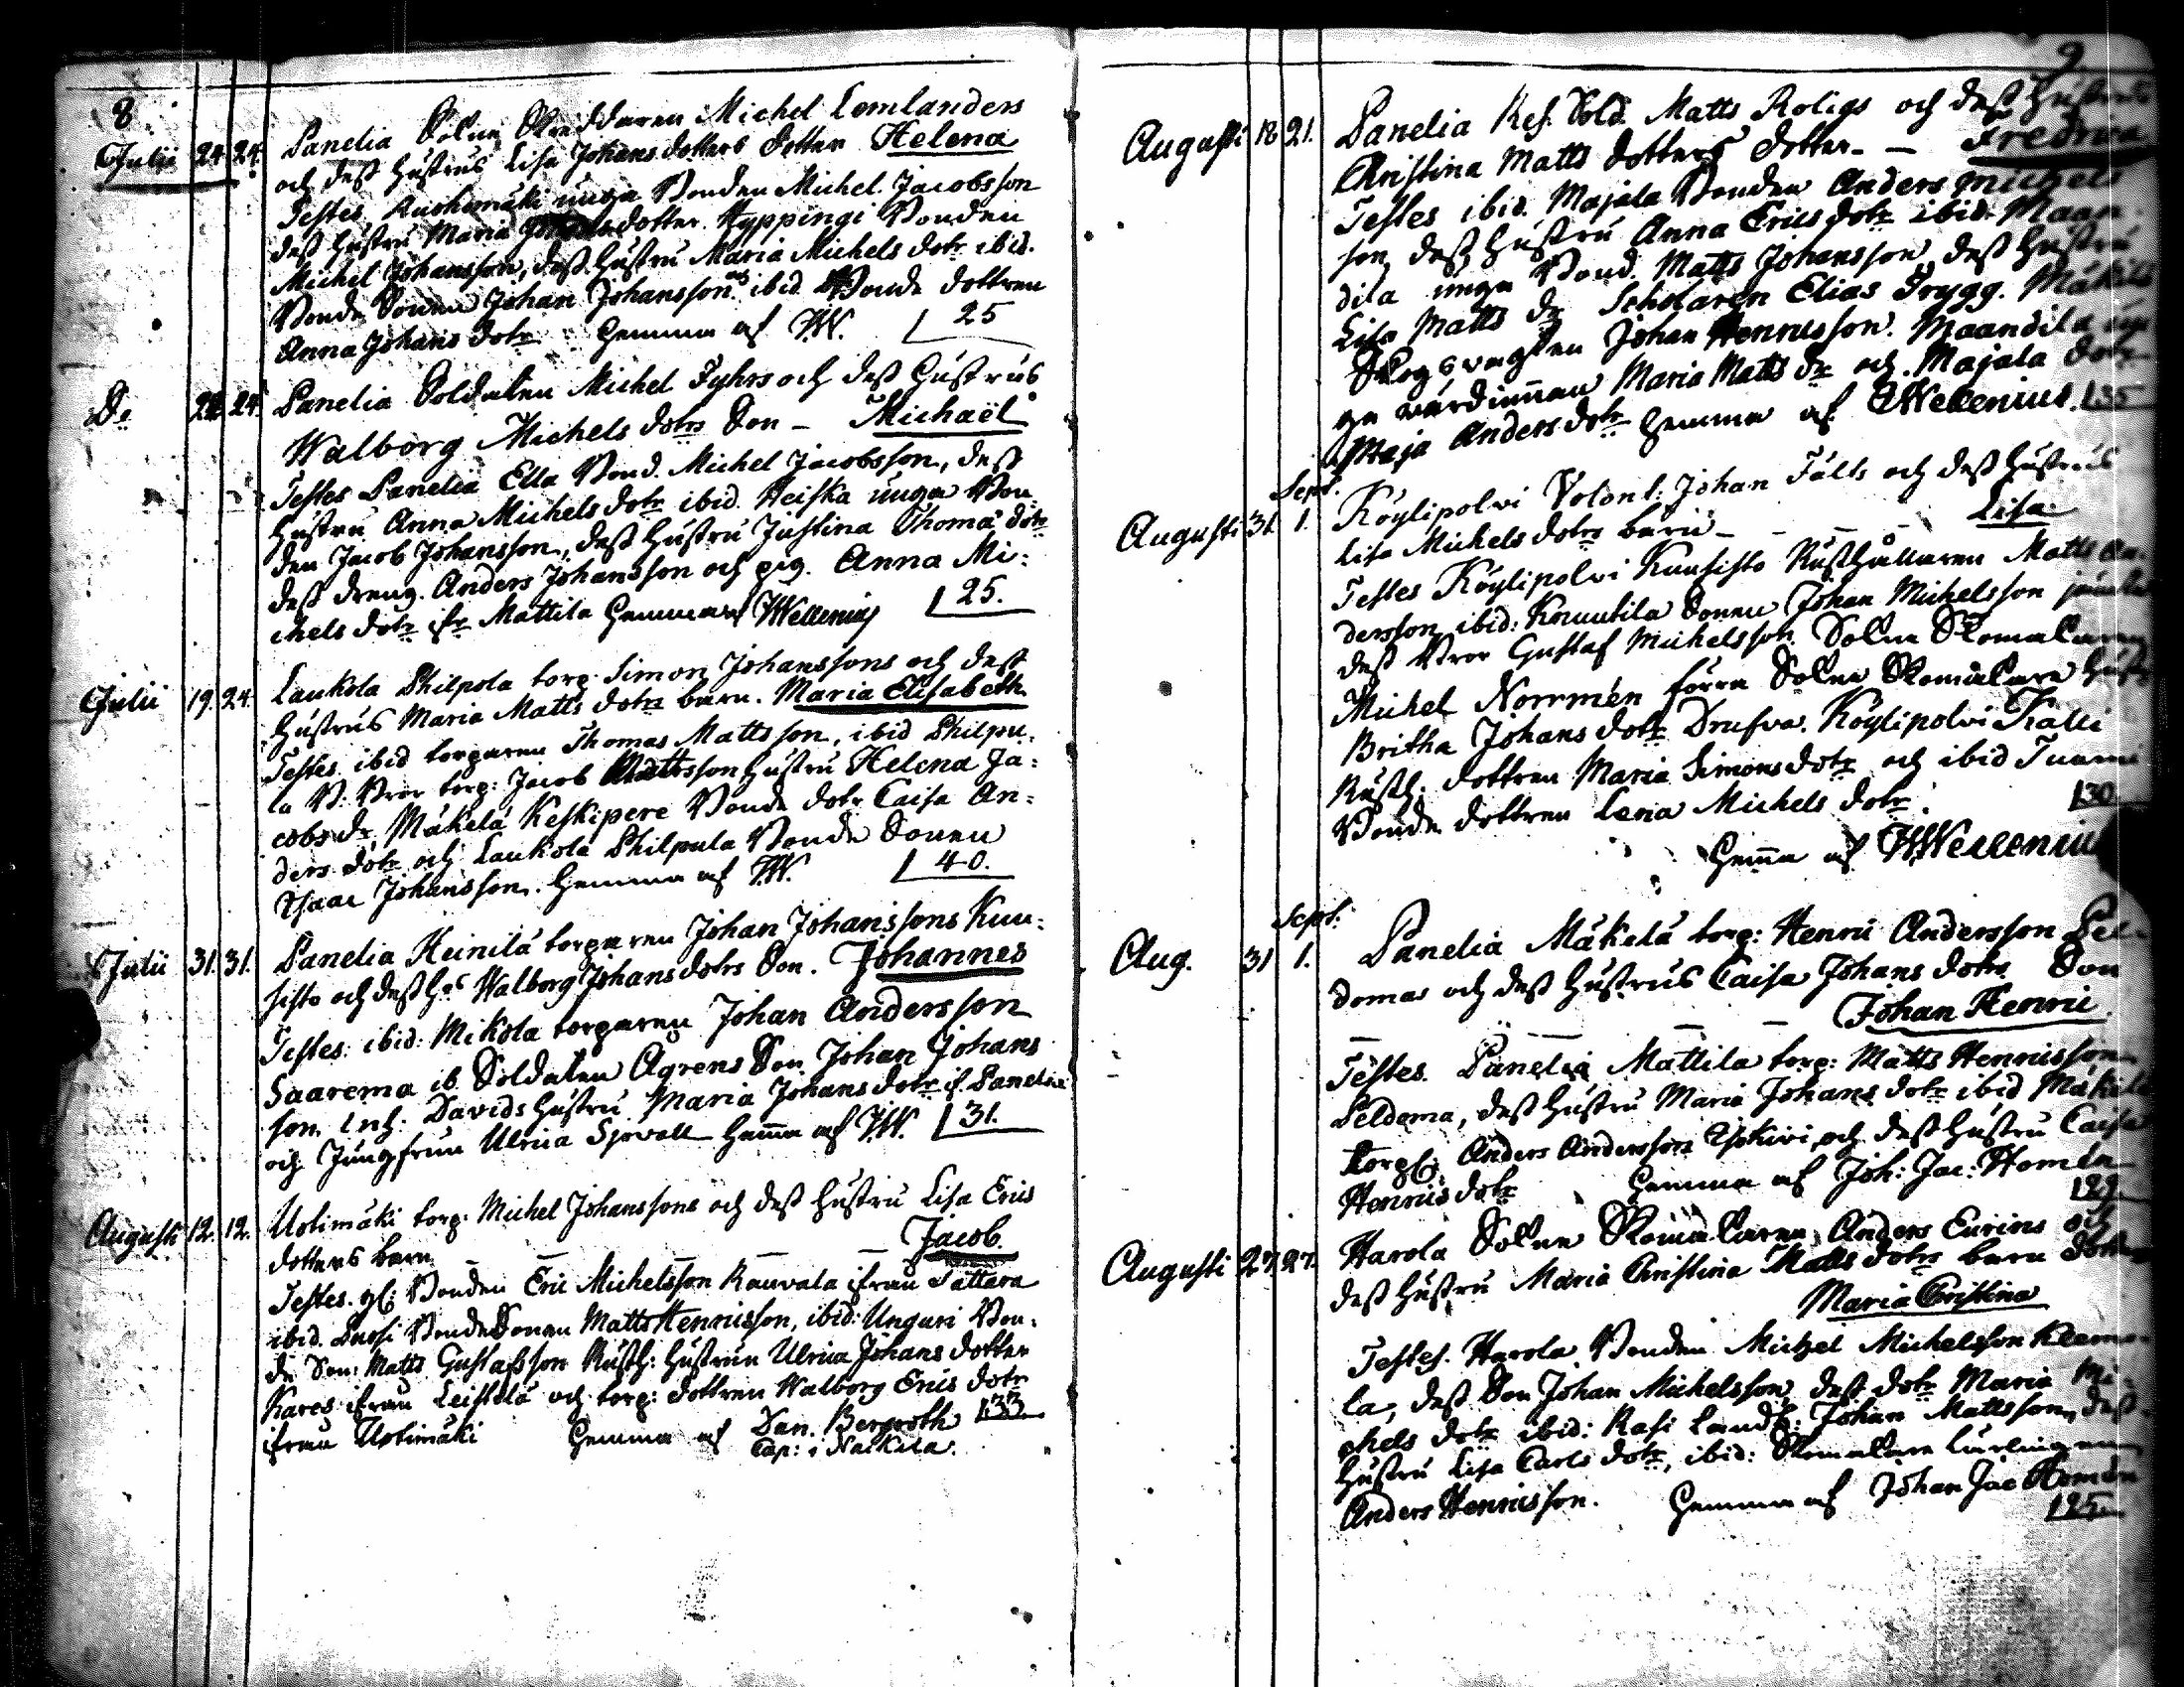 8
Julii 24 24. Panelia Sokne Skreddaren Michel Lemlanders
och dess Hustrus Lisa Johans dotters dotter Helena
Testes. Ruohimäki unga Bonden Michel Jacobsson
dess Hustru Maria dotter. Hyppingi Bonden
Michel Johansson, dess Hustru Maria Michels dotr ibid.
Bonde Sonen Johan Johansson och ibid Bonde dottren
Anna Johans dotr Hemma af J.W. 25
Do 24. Panelia Soldaten Michel Fyhrs och dess Hustrus
Walborg Michels dotrs Son - Michaël
Testes Panelia Ella Bond. Michel Jacobsson, dess
Hustru Anna Michels dotr ibid. Heiska unga Bon
den Jacob Johansson, dess Hustru Justina Thomæ dotr
dess dreng. Anders Johansson och pig. Anna Mi:
chels dotr ifr Mattila Hemma af JWellenius 25.
Julii 19. 24. Laukola Philpola torp. Simon Johanssons och dess
Hustrus Maria Matts dotrs barn. Maria Elisabeth
Testes ibid torparen Thomas Mattsson, ibid Philpu-
la B. Bror torp: Jacob Mattsson Hustru Helena Ja:
cobs dr, Mäkelä Keskipere Bonde dotr Caisa An:
ders dotr och Laukola Philpula Bonde Sonen
Isaac Johansson. Hemma af J.W. 40.
Julii 31. 31. Panelia Heinilä torparen Johan Johanssons Kuu:
sisto och dess Hs Walborg Johans dotrs Son. Johannes
Testes: ibid: Mikola torparen Johan Andersson
Saarema ib. Soldaten Agrens Son Johan Johans
son Enk: Davids Hustru Maria Johans dotr if. Panelia
och Jungfrun Ulrica Sjovall Hemma af J.W. 31.
Augusti 12. 12. Uotimäki torp. Michel Johanssons och dess Hustru Lisa Erics
dotters barn - - - - Jacob.
Testes. gl: Bonden Eric Michelsson Rauvala ifrån Sattara
ibid. Bonde Sonen Matts Henricsson, ibid: Unguri Bon:
de Son: Matts Gustafsson Rusth: Hustrun Ulrica Johans dotter
Kares ifrån Leistilä och torp: dottren Walborg Erics dotr
ifrån Uotimäki Hemma af Dan. Bergroth 33
Cap: i Nackila.
9
Augusti 18 21. Panelia Ref. Sold. Matts Roligs och dess Hustrus
Christina Matts dotters dotter - - Fredrica
Testes ibid. Majala Bonden Anders Michels
son, dess Hustru Anna Erics dotr ibid. Maan
dila unga Bond. Matts Johansson, dess Hustru
Lisa Matts dr Scholaren Elias Trygg. Mäkilä
Skogsvagten Johan Henricsson. Maandila un
ga värdinnan Maria Matts dr och Majala dotr
Maja Anders dotr Hemma af JWellenius. 35
Sept.
Augusti 31. 1. Köylipolvi Volont: Johan Fälts och dess Hustrus
Lisa Michels dotrs barn - - - - Lisa
Testes Köylipolvi Kuusisto Rusthållaren Matts An
dersson, ibid: Knuutila Sonen Johan Michelsson jämte
dess Bror Gustaf Michelsson Sokne Skomakaren
Michel Norrmén förra Sokne Skomakare Hust
Britha Johans dotr Drufva. Köylipolvi Kalli
Rusth. dottren Maria Simons dotr och ibid Tuomi
Bonde dottren Lena Michels dotr. 30
Hemma af JWellenius
Sept:
Aug. 31 1. Panelia Mäkelä torp: Henric Andersson Pel-
domas och dess Hustrus Caisa Johans dotrs Son
- - - - Johan Henric.
Testes. Panelia Mattila torp: Matts Henricsson
Peldoma, dess Hustru Maria Johans dotr ibid Mäkilä
Torp: Anders Andersson och dess Hustru Caisa
Henrics dotr Hemma af Joh: Jac: Homén
29.
Augusti 27 27. Harola Sokne Skomakaren Anders Eurins och
dess Hustru Maria Christina Matts dotrs barn dotter
Maria Christina
Testes. Harola Bonden Michel Michelsson Klemo-
la, dess Son Johan Michelsson, dess dotr Maria Mi-
chels dotr ibid: Rasi Landb: Johan Mattsson, dess
Hustru Lisa Carls dotr, ibid: Skomakare Lärlingen
Anders Henricsson. Hemma af Johan Jac Homén
25